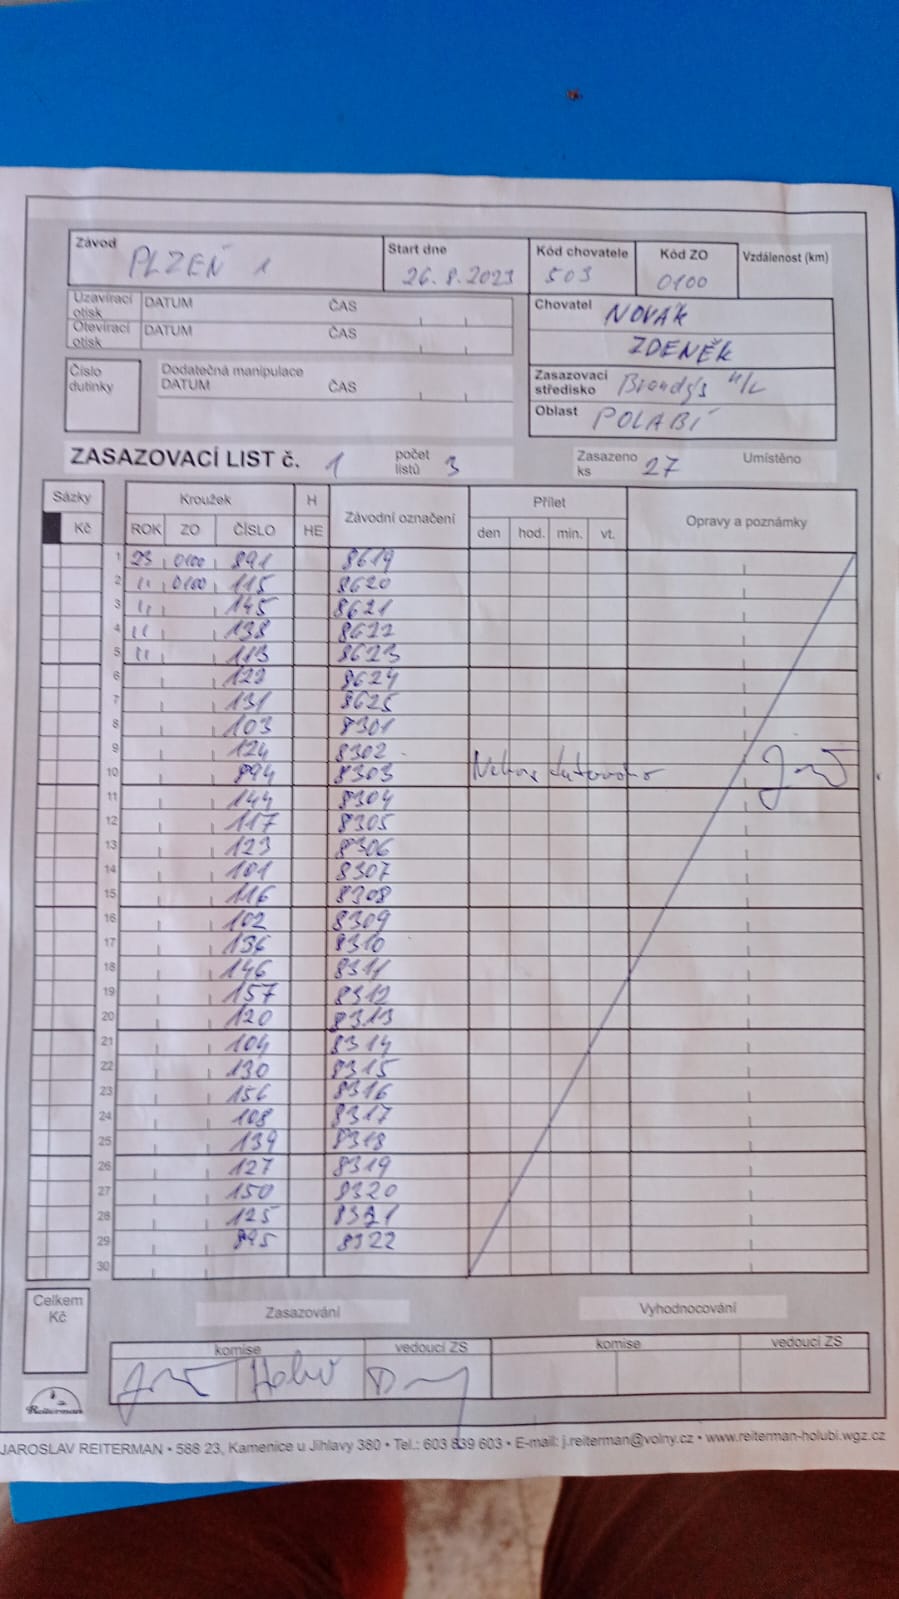 Závod Start dne Kód chovatele Kód ZO Vzdálenost (km)
PLZEŇ 1 26.8.2023 503 0100
Uzavírací otisk DATUM ČAS
Otevírací otisk DATUM ČAS
Chovatel NOVÁK
ZDENĚK
Číslo dutinky
Dodatečná manipulace
DATUM ČAS
Zasazovací středisko Brandýs n/L
Oblast POLABÍ
ZASAZOVACÍ LIST č. 1 počet listů 3 Zasazeno ks 27 Umístěno
Sázky Kroužek H Závodní označení Přílet Opravy a poznámky
Kč ROK ZO ČÍSLO HE den hod. min. vt.
1 23 0100 891 8619
2 " 0100 115 8620
3 " 145 8621
4 " 138 8622
5 " 113 8623
6 122 8624
7 131 8625
8 103 8301
9 124 8302
10 894 8303
11 144 8304
12 117 8305
13 123 8306
14 101 8307
15 116 8308
16 102 8309
17 136 8310
18 146 8311
19 157 8312
20 120 8313
21 104 8314
22 130 8315
23 156 8316
24 108 8317
25 139 8318
26 127 8319
27 150 8320
28 125 8321
29 895 8322
30
Celkem Kč
Zasazování Vyhodnocování
komise vedoucí ZS komise vedoucí ZS
Reiterman
JAROSLAV REITERMAN • 588 23, Kamenice u Jihlavy 380 • Tel.: 603 839 603 • E-mail: j.reiterman@volny.cz • www.reiterman-holubi.wgz.cz